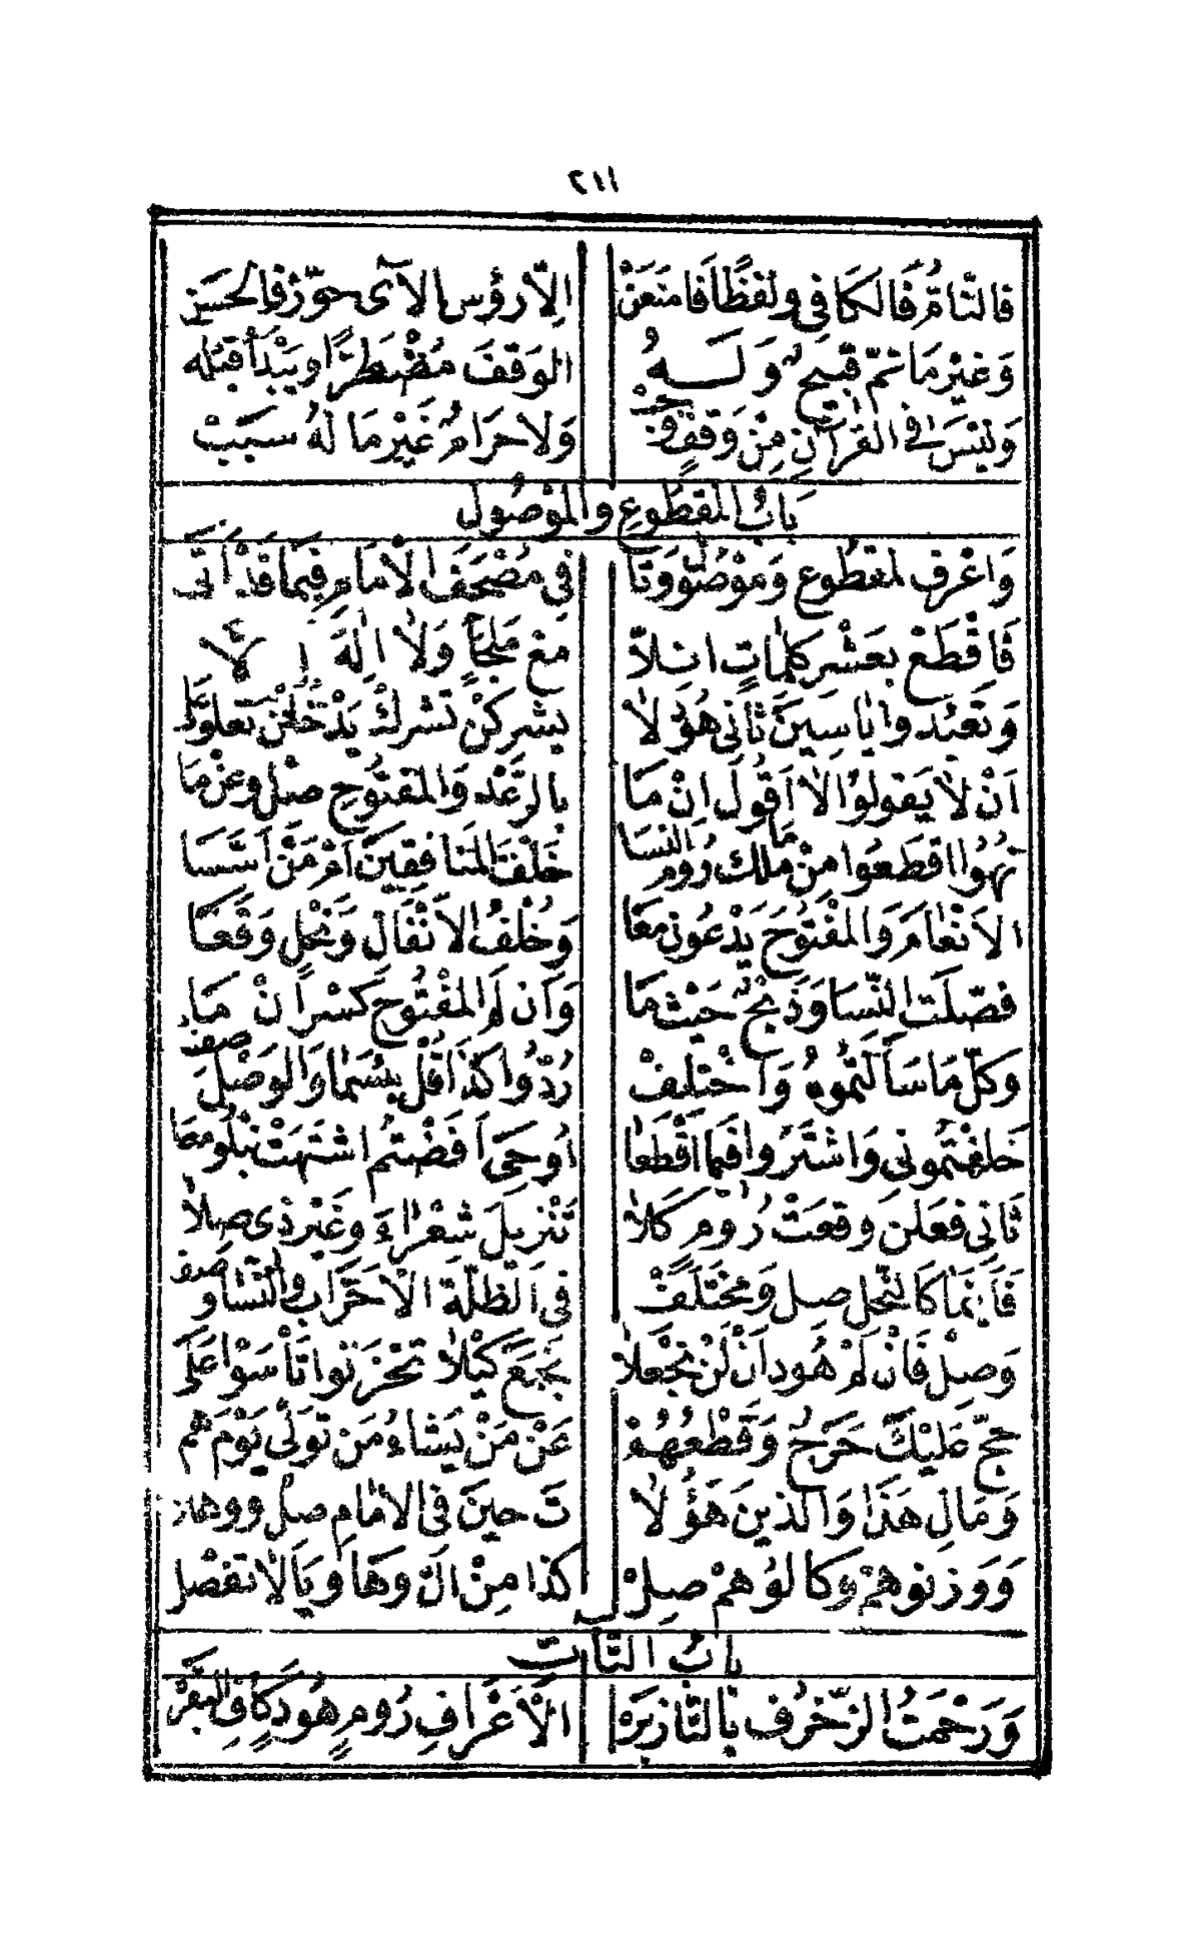 ٢١١
فالتَّامُّ فَالكَافي ولفظًا فَامنَعَنْ الّا رؤس الآى جوّز فالحسن
وَغيْرُ مَا تمّ قبيحٌ وَلَهُ الوَقفَ مُضْطرًّا ويَبْدأ قبْله
وَليْسَ في القرآنِ مِنْ وَقفٍ وَجَبْ وَلا حرَامٌ غَيْر مَا لهُ سبَبْ
بَابُ المقطُوعِ والمَوْصُولِ
وَاعْرف لمقطُوع وَموْصُولٍ وَتَا في مُصْحَفِ الاْمَامِ فِيمَا قدْ أتَى
فَاقْطَعْ بعَشْر كلمَاتٍ ان لاّ مَعْ مَلجَأٍ وَلاٰ الٰهَ الاّ
وَتَعْبُدوا ياسِينَ ثَانِى هُودَ لاٰ يشْركنْ تشْركْ يَدْخُلنْ تعْلوا عَلَى
اَنْ لاٰ يَقولوُا لاٰ اَقُولَ انْ مَا بالرَّعْد وَالمفتُوحِ صِلْ وعنْ مَا
نهُوُا اقطعُوا منْ مَا ملك رُوم النسَا خلْفَ المنَافِقِينَ اَمْ مَنْ اَسَّسَا
الاَنْعَامَ وَالمَفتُوحَ يَدْعُونَ مَعَا وَخُلْفُ الاَنْفَالِ وَنحْلٍ وَقَعَا
فصّلَت النّسَا وَذبْحٌ حَيْث مَا وَاَن لَم المفْتُوحَ كسْرُ انْ مَا
وَكلِّ مَا سَاَلتُمُوهُ وَاخْتلِفْ رُدُّوا كذَا قُلْ بئْسَمَا وَالوَصْلَ صِفْ
خَلفْتُمُونى وَاشْتَرَوْا فى مَا اقْطعَا اُوحِىَ اَفَضْتمُ اشتَهَتْ يَبْلُو مَعَا
ثَانِى فعَلنَ وقعَتْ رُومٌ كِلاٰ تَنْزِيلَ شعْرَاء وَغَيْر ذى صِلاٰ
فَاَينَمَا كَالنّحْل صِل وَمُخْتَلَفْ في الظلّة الاَحْزَاب وَالنّسَا وُصِفْ
وَصِلْ فَانْ لَمْ هُودَ اَنْ لنْ نجْعَلاٰ نجْمَعَ كيْلاٰ تحْزَنوا تَأْسَوْا عَلَى
حجٌّ عَليْكَ حَرَجٌ وَقَطْعُهُمْ عَنْ مَنْ يَشَاءُ مَن توَلّى يَوْمَ هُم
وَمَالِ هَذَا وَالذينَ هَؤُلاٰ تَ حينَ في الاِمَامِ صِلْ ووهلا
وَوزنوهمْ وكالوُهمْ صِلْ كذا مِنْ الْ وَهَا وَيَا لاٰ تفصْل
بَابُ التَّاآت
وَرَحْمَتُ الزّخْرُف بالتّا زبَرَهْ الاَعْرَافِ رُومٍ هُودَ كافِ البَقَرَهْ